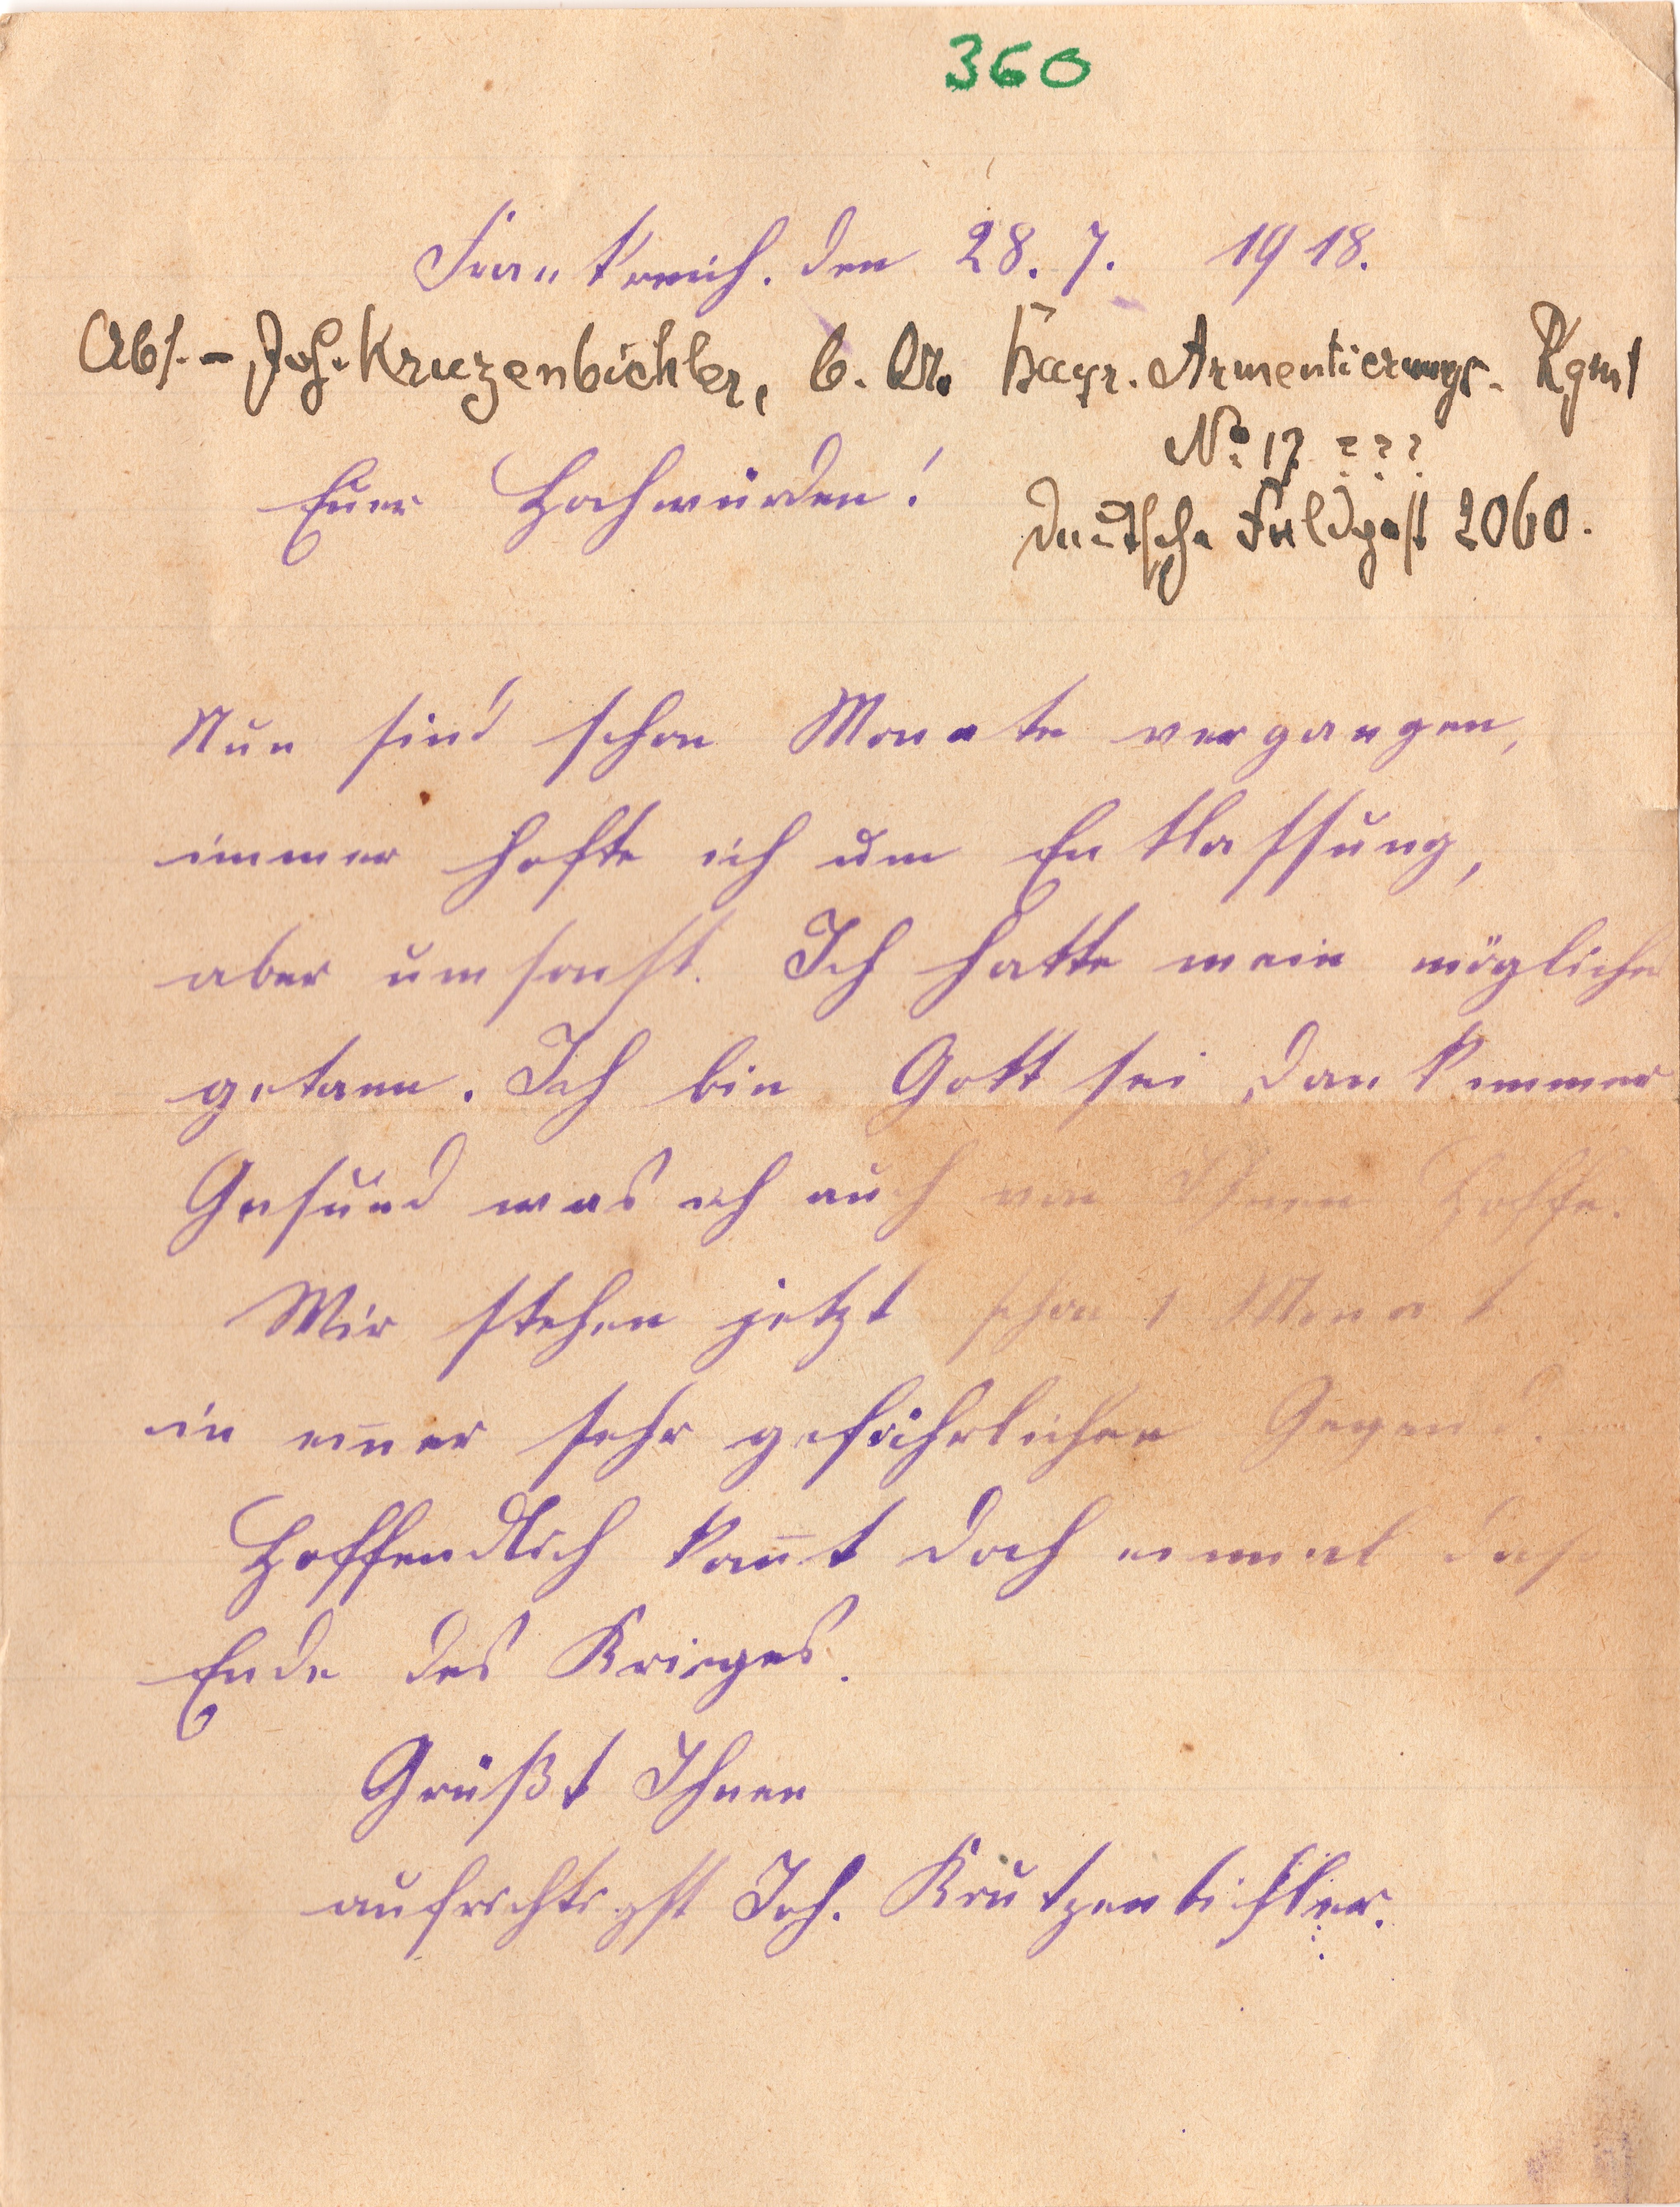 360
Frankreich. den 28. 7. 1918.
Abs. - Joh. Kruzenbichler, b. Bayr. Armentierungs. Rgmt
No. 17 ???
Deutsche Feldpost 2060.
Euer Hochwürden!
Nun sind schon Monate vergangen,
immer hofte ich um Entlassung,
aber umsonst. Ich hatte mein mögliche
getann. Ich bin Gott sei Dank immer
Gesund was ich auch von Ihnen Hoffe.
Wir stehen jetzt schon 1 Monat
in einer sehr gefährlichen Gegend.
Hoffendlich kom̄t doch einmal das
Ende des Krieges.
Grüßt Ihnen
aufrichtigst Joh. Krutzenbichler.